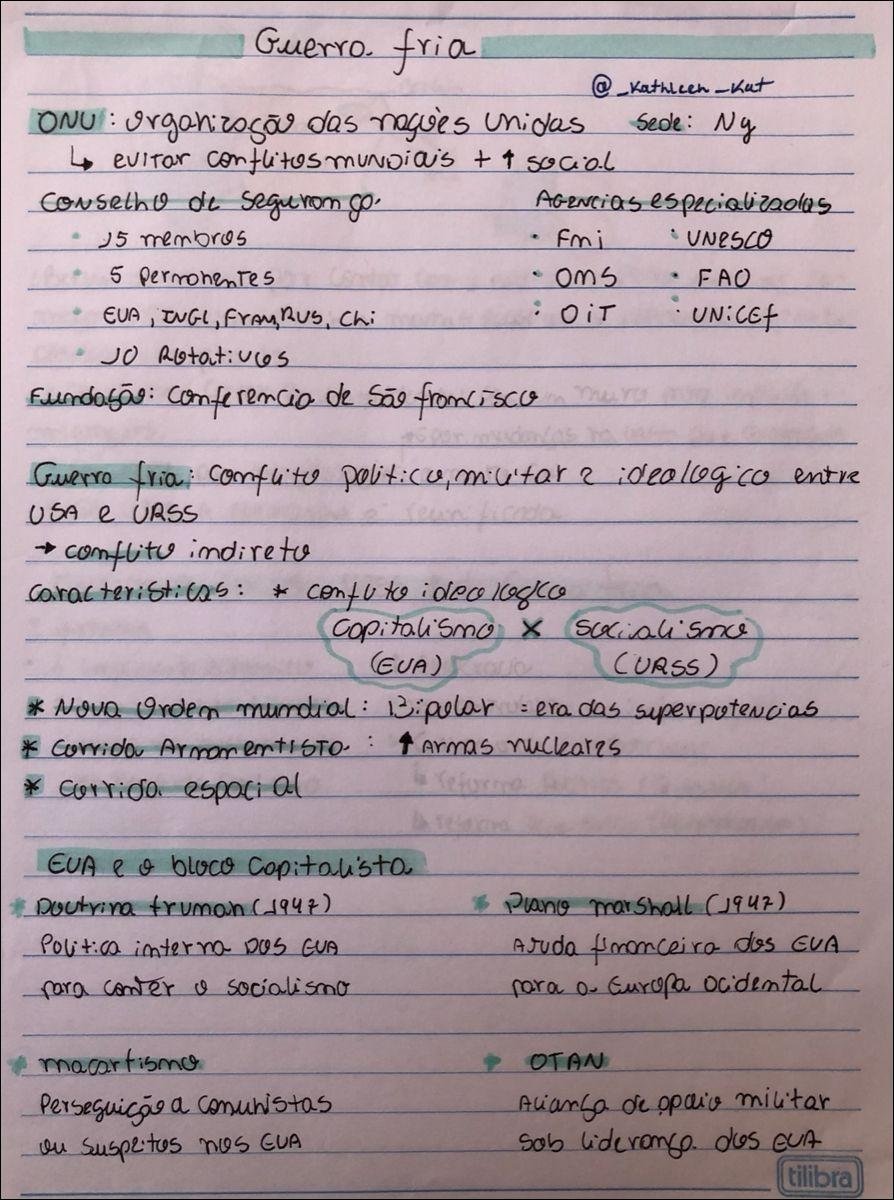 Guerra fria
@_Kathleen_Kut
ONU: Organização das nações Unidas Sede: Ny
↳ evitar conflitos mundiais + ↑ social
Conselho de Segurança Agencias especializadas
• 15 membros • Fmi • UNESCO
• 5 Permanentes • OMS • FAO
• EUA, INGL, FRAN, RUS, Chi • OiT • UNiCEf
• 10 Rotativos
Fundação: Conferencia de São francisco
Guerra fria: Conflito politico, militar e ideologico entre
USA e URSS
→ conflito indireto
Caracteristicas: * conflito ideologico
Capitalismo (EUA) X Socialismo (URSS)
* Nova Ordem mundial: Bipolar = era das superpotencias
* Corrida Armamentista: ↑ Armas nucleares
* Corrida espacial
EUA e o bloco Capitalista
* Doutrina truman (1947) * Plano marshall (1947)
Politica interna DOS EUA Ajuda financeira dos EUA
para conter o socialismo para a Europa Ocidental
* macartismo * OTAN
Perseguição a Comunistas Aliança de apoio militar
ou suspeitos nos EUA Sob liderança dos EUA
tilibra